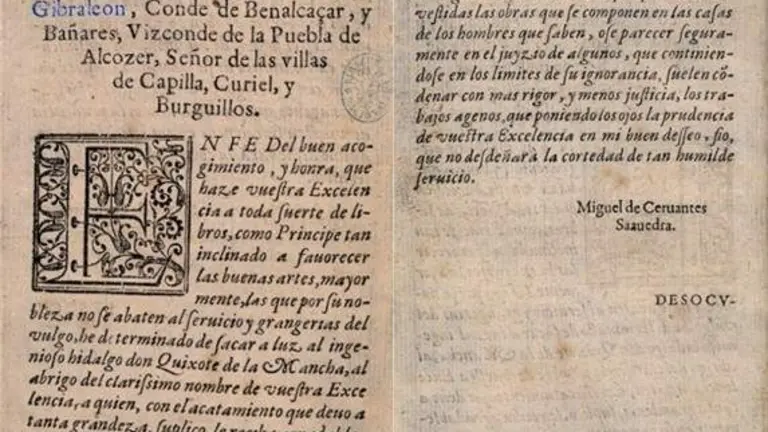 Gibraleon, Conde de Benalcaçar, y
Bañares, Vizconde de la Puebla de
Alcozer, Señor de las villas
de Capilla, Curiel, y
Burguillos.
EN FE Del buen aco-
gimiento, y honra, que
haze vueſtra Excelen
cia a toda ſuerte de li-
bros, como Principe tan
inclinado a fauorecer
las buenas artes, mayor
mente, las que por ſu no-
bleza no ſe abaten al ſeruicio y grangerias del
vulgo, he determinado de ſacar a luz al inge-
nioſo hidalgo don Quixote de la Mancha, al
abrigo del clariſsimo nombre de vueſtra Exce
lencia, a quien, con el acatamiento que deuo a
tanta grandeza, ſuplico, le
veſtidas las obras que ſe componen en las caſas
de los hombres que ſaben, oſe parecer ſegura-
mente en el juyzio de algunos, que continien-
doſe en los limites de ſu ignorancia, ſuelen cõ-
denar con mas rigor, y menos juſticia, los tra-
bajos agenos, que poniendo los ojos la prudencia
de vueſtra Excelencia en mi buen deſſeo, fio,
que no deſdeñarà la cortedad de tan humilde
ſeruicio.
Miguel de Ceruantes
Saauedra.
DESOCV-